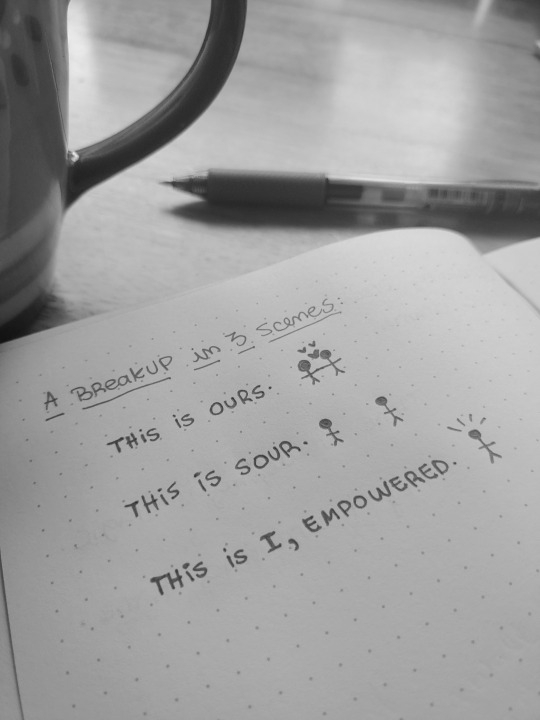 A BREAKUP in 3 scenes.
THis is OURS.
THis is SOUR.
THis is I, EMPOWERED.